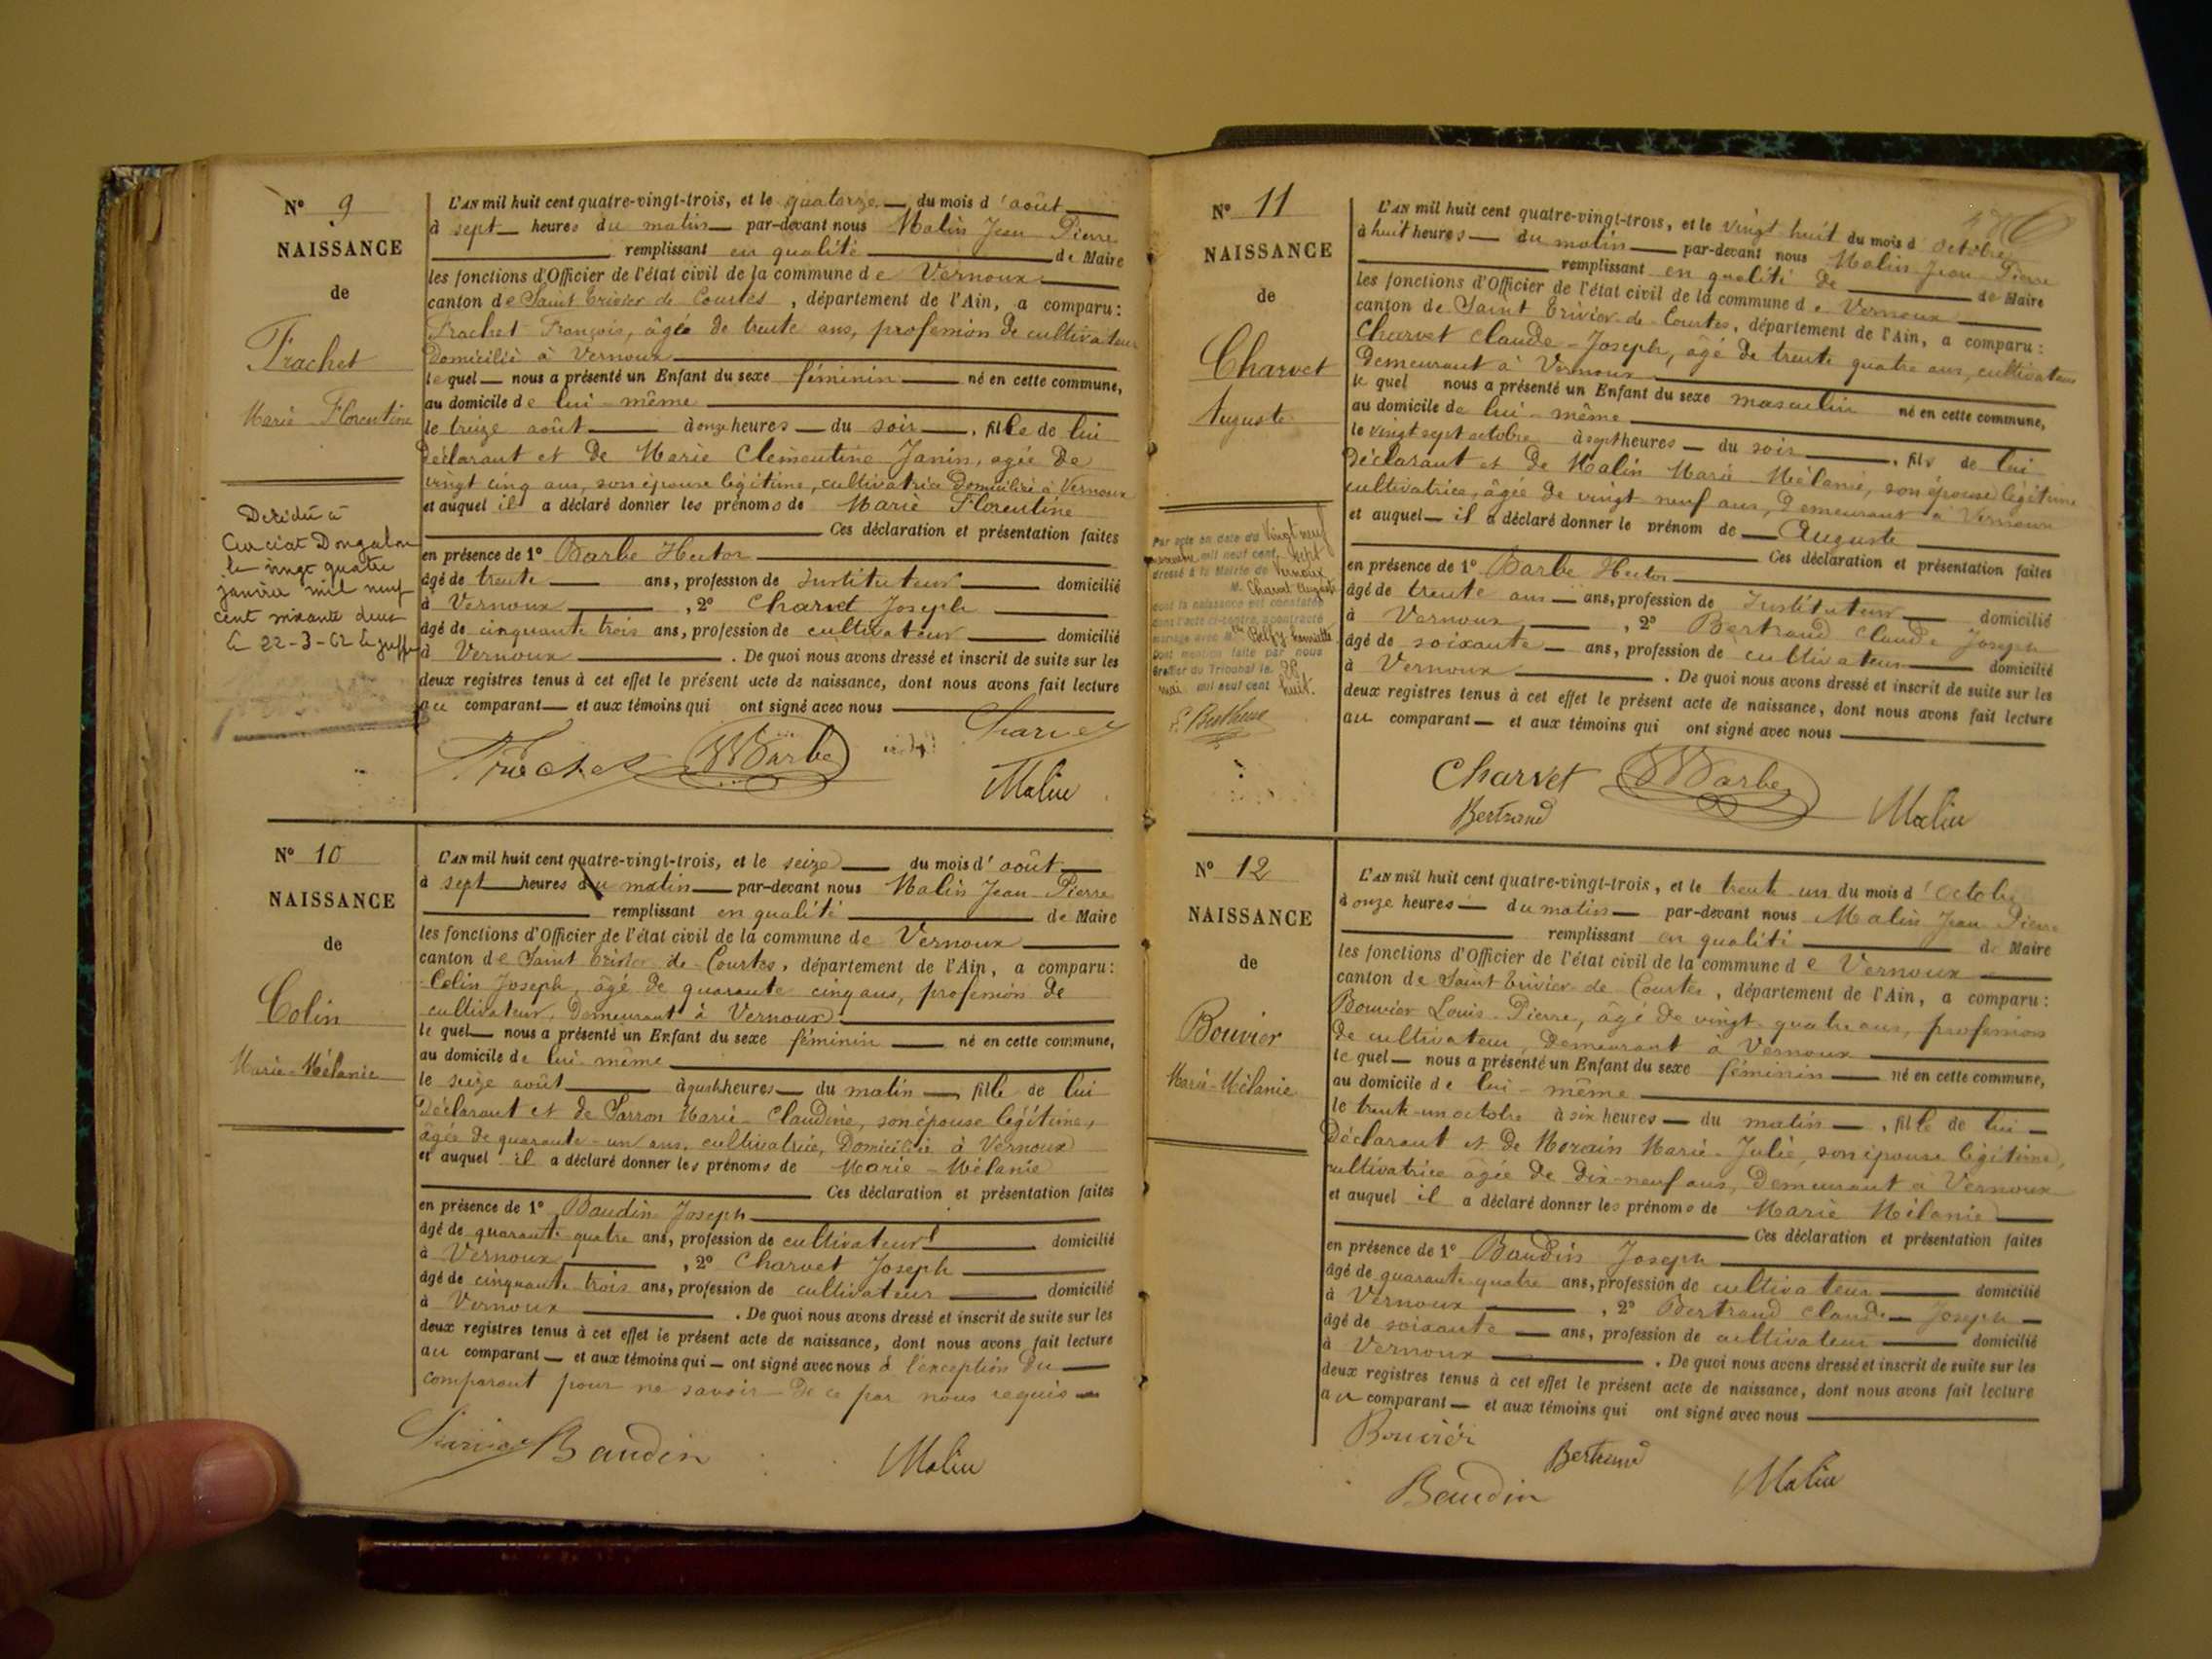 N° 9
NAISSANCE
de
Frachet
Marie Florentine
Décédée à
Curciat Dongalon
le vingt quatre
janvier mil neuf
cent soixante deux
le 22-3-62
L'AN mil huit cent quatre-vingt-trois, et le quatorze du mois d'août
à sept heures du matin par-devant nous Malin Jean Pierre
remplissant en qualité de Maire
les fonctions d'Officier de l'état civil de la commune de Vernoux
canton de Saint Trivier de Courtes, département de l'Ain, a comparu:
Frachet François, âgé de trente ans, profession de cultivateur
Domicilié à Vernoux
lequel nous a présenté un Enfant du sexe féminin né en cette commune,
au domicile de lui-même
le treize août à onze heures du soir, fille de lui
déclarant et de Marie Clémentine Janin, agée de
vingt cinq ans, son épouse légitime, cultivatrice domiciliée à Vernoux
et auquel il a déclaré donner les prénoms de Marie Florentine
Ces déclaration et présentation faites
en présence de 1° Barbe Hector
âgé de trente ans, profession de Instituteur domicilié
à Vernoux, 2° Charvet Joseph
âgé de cinquante trois ans, profession de cultivateur domicilié
à Vernoux. De quoi nous avons dressé et inscrit de suite sur les
deux registres tenus à cet effet le présent acte de naissance, dont nous avons fait lecture
au comparant et aux témoins qui ont signé avec nous
Frachet Barbe Charvet
Malin
N° 10
NAISSANCE
de
Colin
Marie-Mélanie
L'AN mil huit cent quatre-vingt-trois, et le seize du mois d'août
à sept heures du matin par-devant nous Malin Jean Pierre
remplissant en qualité de Maire
les fonctions d'Officier de l'état civil de la commune de Vernoux
canton de Saint Trivier de Courtes, département de l'Ain, a comparu:
Colin Joseph, âgé de quarante cinq ans, profession de
cultivateur, demeurant à Vernoux
le quel nous a présenté un Enfant du sexe féminin né en cette commune,
au domicile de lui-même
le seize août à quatre heures du matin, fille de lui
Déclarant et de Marie-Claudine, son épouse légitime,
âgée de quarante-un ans, cultivatrice, domiciliée à Vernoux
et auquel il a déclaré donner les prénoms de Marie-Mélanie
Ces déclaration et présentation faites
en présence de 1° Baudin Joseph
âgé de quarante quatre ans, profession de cultivateur domicilié
à Vernoux, 2° Charvet Joseph
âgé de cinquante trois ans, profession de cultivateur domicilié
à Vernoux. De quoi nous avons dressé et inscrit de suite sur les
deux registres tenus à cet effet le présent acte de naissance, dont nous avons fait lecture
au comparant et aux témoins qui ont signé avec nous à l'exception du
comparant pour ne savoir de ce par nous requis
Baudin Malin
N° 11
NAISSANCE
de
Charvet
Auguste
Par acte en date du Vingt neuf
mil neuf cent sept
dressé à la Mairie de Vernoux
M. Charvet Auguste
dont la naissance est constatée
dans l'acte ci-contre, a contracté
mariage avec Mlle Henriette
Dont mention faite par nous
Greffier du Tribunal le 28
mai mil neuf cent huit.
L'AN mil huit cent quatre-vingt-trois, et le vingt huit du mois d'octobre
à huit heures du matin par-devant nous Malin Jean Pierre
remplissant en qualité de de Maire
les fonctions d'Officier de l'état civil de la commune de Vernoux
canton de Saint Trivier de Courtes, département de l'Ain, a comparu:
Charvet Claude-Joseph, âgé de trente quatre ans, cultivateur
demeurant à Vernoux
le quel nous a présenté un Enfant du sexe masculin né en cette commune,
au domicile de lui-même
le vingt sept octobre à sept heures du soir, fils de lui
Déclarant et de Malin Marie Mélanie, son épouse légitime
cultivatrice, âgée de vingt neuf ans, demeurant à Vernoux
et auquel il a déclaré donner le prénom de Auguste
Ces déclaration et présentation faites
en présence de 1° Barbe Hector
âgé de trente ans ans, profession de Instituteur domicilié
à Vernoux, 2° Bertrand Claude Joseph
âgé de soixante ans, profession de cultivateur domicilié
à Vernoux. De quoi nous avons dressé et inscrit de suite sur les
deux registres tenus à cet effet le présent acte de naissance, dont nous avons fait lecture
au comparant et aux témoins qui ont signé avec nous
Charvet Barbe
Bertrand Malin
N° 12
NAISSANCE
de
Bouvier
Marie-Mélanie
L'AN mil huit cent quatre-vingt-trois, et le trente un du mois d'octobre
à onze heures du matin par-devant nous Malin Jean Pierre
remplissant en qualité de Maire
les fonctions d'Officier de l'état civil de la commune de Vernoux
canton de Saint Trivier de Courtes, département de l'Ain, a comparu:
Bouvier Louis-Pierre, âgé de vingt-quatre ans, profession
de cultivateur, demeurant à Vernoux
le quel nous a présenté un Enfant du sexe féminin né en cette commune,
au domicile de lui-même
le trente-un octobre à six heures du matin, fille de lui
Déclarant et de Morain Marie-Julie, son épouse légitime,
cultivatrice âgée de dix-neuf ans, demeurant à Vernoux
et auquel il a déclaré donner les prénoms de Marie Mélanie
Ces déclaration et présentation faites
en présence de 1° Baudin Joseph
âgé de quarante quatre ans, profession de cultivateur domicilié
à Vernoux, 2° Bertrand Claude Joseph
âgé de soixante ans, profession de cultivateur domicilié
à Vernoux. De quoi nous avons dressé et inscrit de suite sur les
deux registres tenus à cet effet le présent acte de naissance, dont nous avons fait lecture
au comparant et aux témoins qui ont signé avec nous
Bouvier Bertrand
Baudin Malin